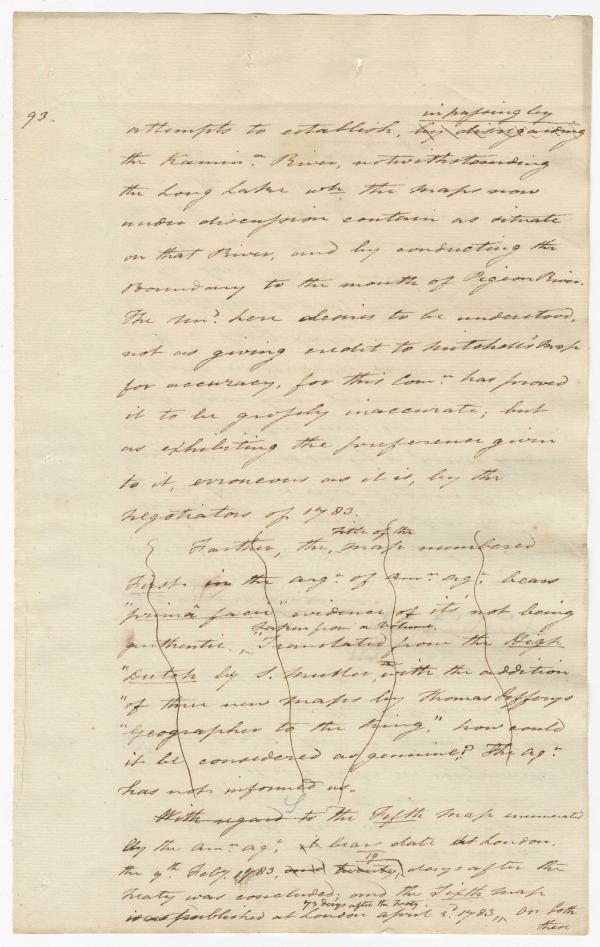 93.
in passing by
attempts to establish, by disregarding
the Kamin.a River, notwithstanding
the Long Lake wh. the maps now
under discussion contain as situate
on that River, and by conducting the
Boundary to the mouth of Pigeon River.
The Un.d here desires to be understood,
not as giving credit to Mitchell's Map
for accuracy, for this Com.n has proved
it to be grossly inaccurate; but
as exhibiting the preference given
to it, erroneous as it is, by the
negotiators of 1783.
Title of the
Farther, the, map numbered
First in the arg.t of Amn. Agt. bears
"prima facie" evidence of it's not being
Taken from a Volume
authentic. "Translated from the High
"Dutch by S. Muller, with the addition
"of three new maps by Thomas Jefferys
"Geographer to the King," how could
it be considered as genuine? The Agt.
has not informed us.
With regard to the Fifth map enumerated
by the Amn. Agt. it bears date at London,
19
the 9th Feby. 1783, and twenty, days after the
treaty was concluded; and the Sixth map
73 days after the Treaty
it was published at London April 3d. 1783, On both
these